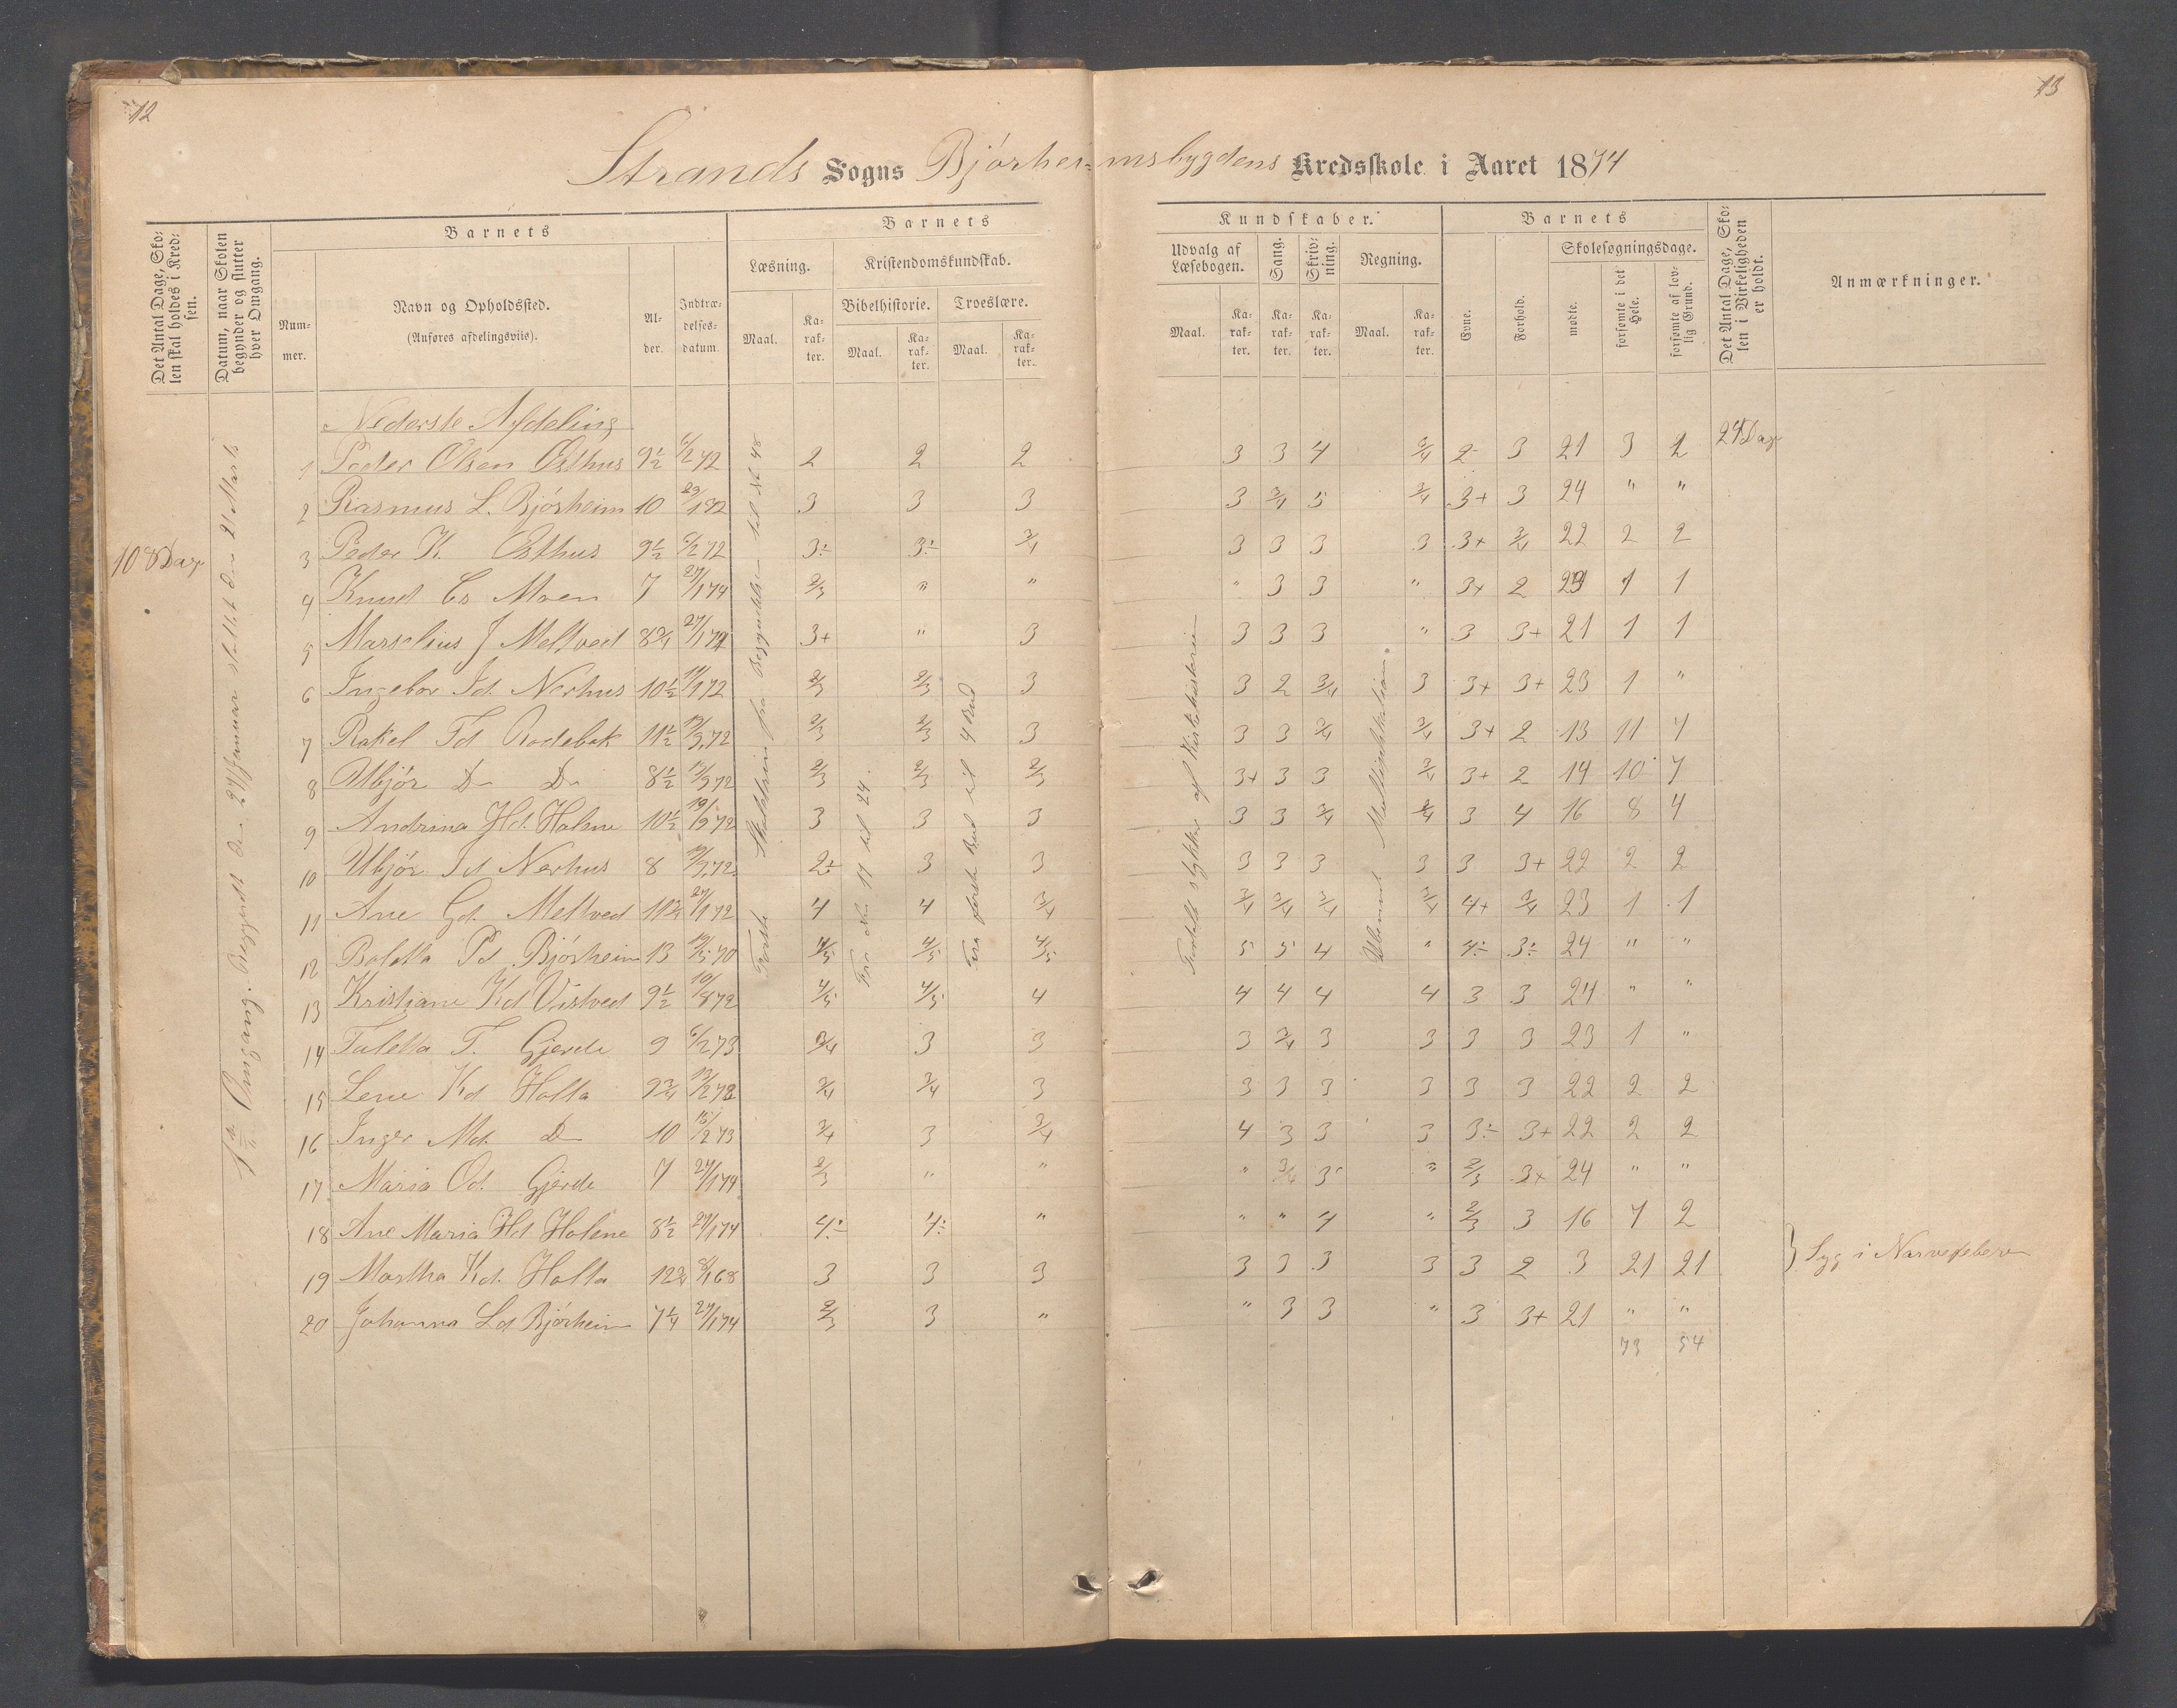 12
13
Strands Sogns Bjórheimsbygdens Kredsskole i Aaret 1874
Det Antal Dage, Skolen skal holdes i Kredsen.
Datum, naar Skolen begynder og slutter hver Omgang.
Barnets
Nummer.
Navn og Opholdssted.
(Anføres afdelingsviis).
Alder.
Indtrædelsesdatum.
Barnets
Kundskaber.
Læsning.
Kristendomskundskab.
Bibelhistorie.
Troeslære.
Maal.
Karakter.
Maal.
Karakter.
Maal.
Karakter.
Udvalg af Læsebogen.
Sang.
Skrivning.
Regning.
Maal.
Karakter.
Karakter.
Karakter.
Maal.
Karakter.
Barnets
Evne.
Forhold.
Skolesøgningsdage.
mødte.
forsømte i det Hele.
forsømte af lovlig Grund.
Det Antal Dage, Skolen i Virkeligheden er holdt.
Anmærkninger.
108 Dage
1ste Omgang. Begyndt den 27 Januar sluttet den 21 Marts
Nederste Afdeling
24 Dage
Forste Skoletrin fra Begyndelsen til No 48
Fra No 17 til 24.
Fra forste Bud til 4 Bud
Fortalt stykker af Kirkehistorien
Ubenævnt Multiplikation
1 Peder Olsen Østhus 9½ 6/2 72 2 2 2 3 3 4 3/4 2 3 21 3 2
2 Rasmus L. Bjórheim 10 29/1 72 3 3 3 3 3/4 5 3/4 3+ 3 24 " "
3 Peder K. Østhus 9½ 6/2 72 3÷ 3÷ 3/4 3 3 3 3 3+ 3/4 22 2 2
4 Knud Es Moen 7 27/1 74 2/3 " " " 3 3 " 3+ 2 23 1 1
5 Marselius J Meltved 8¾ 27/1 74 3+ " 3 3 3 3 " 3 3+ 21 1 1
6 Ingebor Id. Nerhus 10½ 11/1 72 2/3 2/3 3 3 2 3/4 3 3+ 3+ 23 1 "
7 Rakel Td Rodebak 11½ 12/3 72 2/3 2/3 3 3 3 3/4 3/4 3+ 2 13 11 7
8 Ubjór D- D- 8½ 12/3 72 2/3 2/3 2/3 3+ 3 3 3/4 3+ 2 14 10 7
9 Andrina Hd. Holme 10½ 19/3 72 3 3 3 3 3 3/4 3/4 3 4 16 8 4
10 Ubjór Id Nerhus 8 12/3 72 2÷ 3 3 3 3 3 3 3 3+ 22 2 2
11 Ane Gd. Meltved 11¾ 27/1 72 4 4 3/4 3/4 3/4 3/4 3/4 4+ 3/4 23 1 1
12 Boletta Pd Bjórheim 13 12/5 70 4/5 4/5 4/5 5 5 4 " 4÷ 3÷ 24 " "
13 Kristiane Kd Vistved 9½ 10/8 72 4/5 4/5 4 4 4 4 4 3 3 24 " "
14 Taletta T. Gjerde 9 6/2 73 3/4 3 3 3 3/4 3 3 3 3 23 1 "
15 Lene Kd Holta 9¾ 13/2 73 3/4 3/4 3 3 3 3 3 3 3 22 2 2
16 Inger Md. D- 10 15/2 73 3/4 3 3/4 4 3 3 3 3÷ 3+ 22 2 2
17 Maria Od. Gjerde 7 27/1 74 2/3 " " " 3/4 3 " 2/3 3+ 24 " "
18 Ane Maria Hd Holme 8½ 27/1 74 4÷ 4÷ " " " 4 " 2/3 3 16 7 2
19 Martha Kd. Holta 12¾ 8/1 68 3 3 3 3 3 3 3 3 2 3 21 21 } Syg i Nervefeber
20 Johanna Ld Bjórheim 7¼ 27/1 74 2/3 3 " " 3 3 " 3 3+ 21 " "
73 54